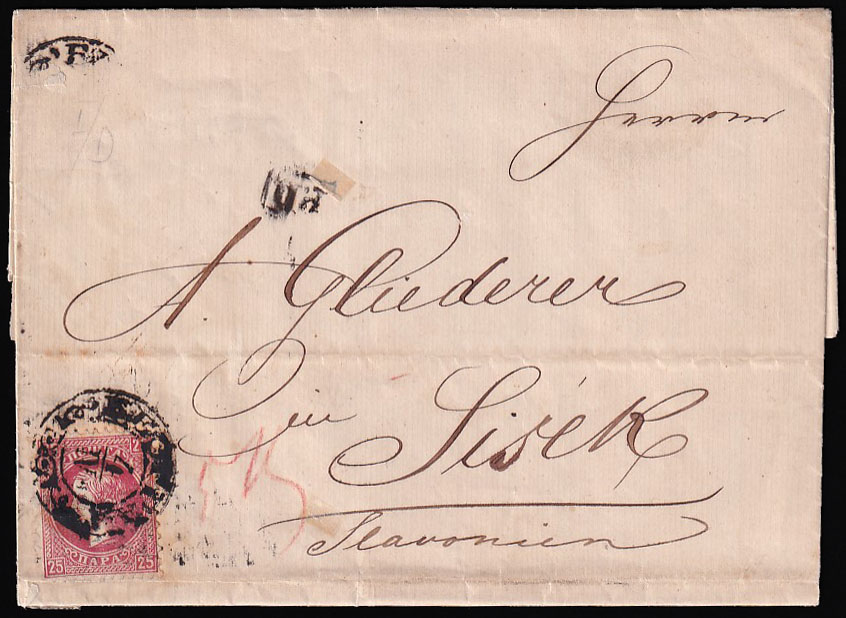 Herrn
A. Gliederer
in Sisek
Slavonien
25 ПАРА 25